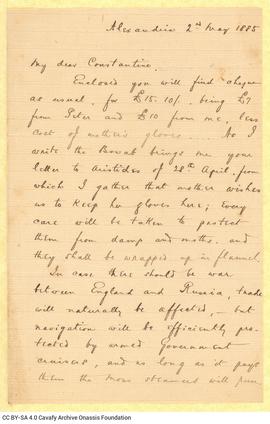 Alexandria 2nd May 1885
My dear Constantine.
Enclosed you will find cheque
as usual, for £15.10/- being £7
from Peter and £10 from me, less
cost of mother's gloves ... As I
write the Bowab brings me your
letter to Aristides of 28th April from
which I gather that mother wishes
us to keep her gloves here; Every
care will be taken to protect
them from damp and moths. and
they shall be wrapped up in flannel.
In case there should be war
between England and Russia, trade
will naturally be affected, - but
navigation will be efficiently pro-
tected by armed Government
cruisers, and as long as it pays
them the Moss steamers will run
CC BY-SA 4.0 Cavafy Archive Onassis Foundation